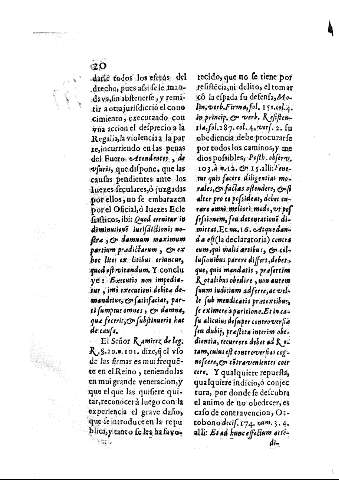 20
darse todos los efetos del
drecho, pues assi se le man-
dava, sin abstenerse, y remi-
tir a otra jurisdicció el cono
cimiento, executando con
una accion el desprecio a la
Regalia, la violencia a la par
te, incurriendo en las penas
del Fuero Attendentes, de
usuris, que dispone, que las
causas pendientes ante los
Juezes seculares, ó juzgados
por ellos, no se embarazen
por el Oficial, ó Juezes Ecle
siasticos, ibi: Quod vertitur in
diminutionem iurisdictionis no-
stræ, & damnum maximum
partium prædictarum, & ex
hoc lites ex litibus oriuntur,
quod est vitandum. Y conclu
ye: Executio non impedia-
tur, imò executioni debitæ de-
mandetur, & satisfaciat, par-
ti sumptus omnes, & damna,
quæ fecerit, & substinuerit hac
de causa.
El Señor Ramirez de leg.
R. §. 20. n. 101. dize, q̃ el vso
de las firmas es muy freque-
te en el Reino, teniendolas
en mui grande veneracion, y
que el que las quisiere qui-
tar, reconocerá luego con la
experiencia el grave daño,
que se introduce en la repu
blica, y tanto se les ha favo-
recido, que no se tiene por
resistécia, ni delito, el tomar
có la espada su defensa, Mo-
lin. verb. Firma, fol. 150. col. 4.
in princip. & verb. Resisten-
tia, fol. 287. col. 4. vers. 2. su
obediencia debe procurarse
por todos los caminos, y me
dios possibles, Posth. observ.
103. à n. 12. & 15. alli: Tene-
tur quis facere diligentias mo-
rales, & factas ostendere, & est
alter pro ea possideat, debet cu-
rare omni meliori modo, ut pos
sessionem, seu detentionẽ di-
mittat. Et nu. 16. Atque dam-
da est (la declaratoria) contra
eum, qui malis artibus, & col-
lusionibus parere differt, debet-
que, quis mandatis, præsertim
Rotalibus obedire, non autem
suum iudicium adferre, ac vel-
le sub mendicatis prætextibus,
se eximere à paritione. Et in ca-
su alicuius desuper controversiæ
seu dubij, præstita interim obe-
dientia, recurrere debet ad Ro-
tam, cuius est controversias cog-
noscere, & contravenientes coer
cere. Y qualquiere repuesta,
qualquiere indicio, ó conjec
tura, por donde se descubra
el animo de no obedecer, es
caso de contravencion, Ot-
tobono decis. 174. num. 3. 4.
alli: Et ad hunc effectum atte-
di-